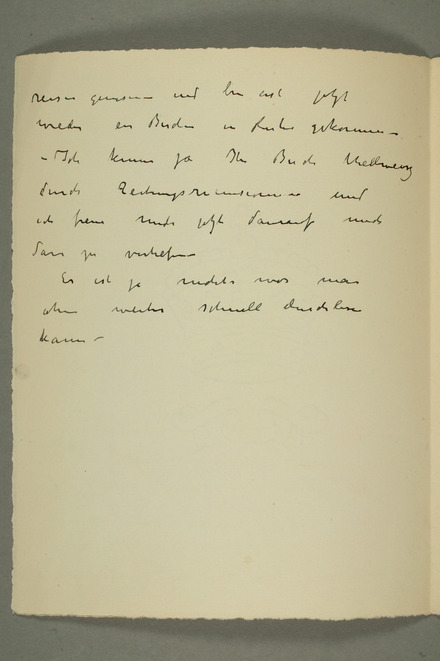 reisen gewesen und bin erst jetzt
wieder in Baden in Ruhe gekommen –
– Ich kenne ja Ihr Buch
durch Zeitungsrezensionen und
ich freue mich jetzt darauf mich
darin zu vertiefen –
Es ist ja nichts was man
ohne weiters schnell durchlesen
kann –